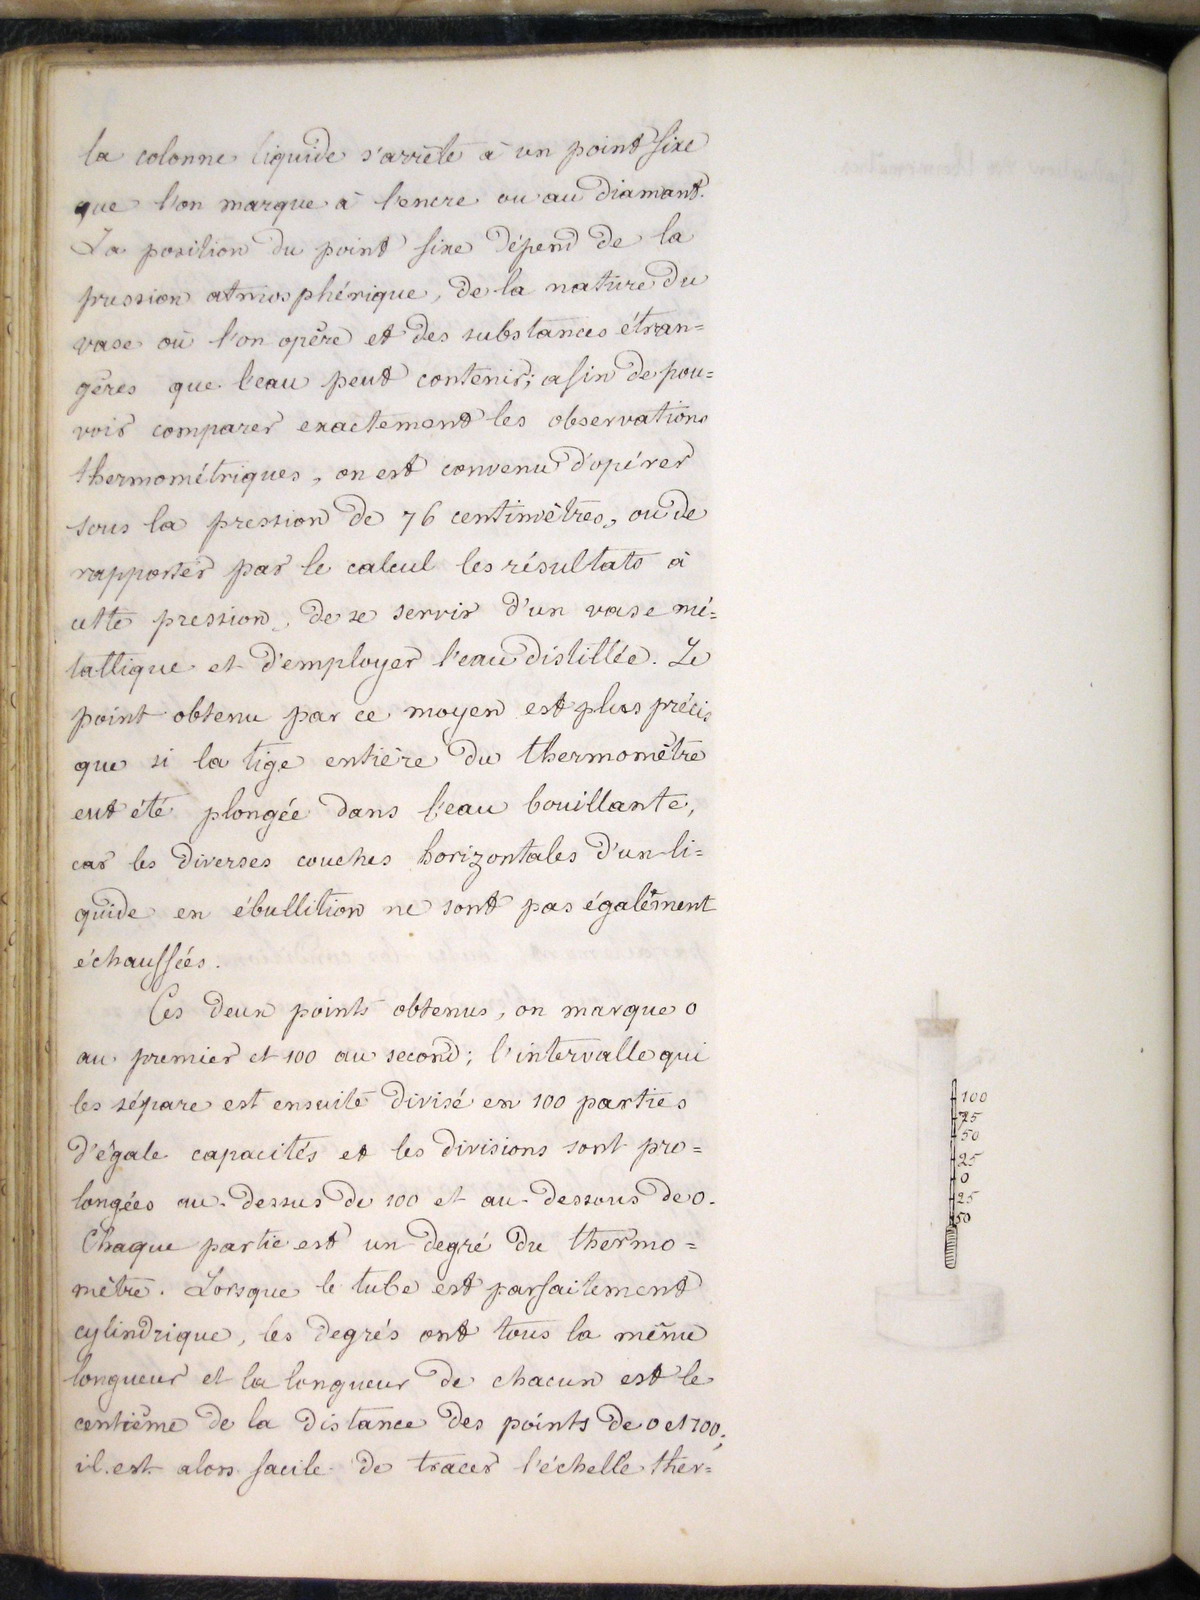 la colonne liquide s'arrête à un point fixe
que l'on marque à l'encre ou au diamant.
La position du point fixe dépend de la
pression atmosphérique, de la nature du
vase où l'on opère et des substances étran=
gères que l'eau peut contenir; afin de pou=
voir comparer exactement les observations
thermométriques, on est convenu d'opérer
sous la pression de 76 centimètres, ou de
rapporter par le calcul les résultats à
cette pression, de se servir d'un vase mé=
tallique et d'employer l'eau distillée. Le
point obtenu par ce moyen est plus précis
que si la tige entière du thermomètre
eut été plongée dans l'eau bouillante,
car les diverses couches horizontales d'un li=
quide en ébullition ne sont pas également
échauffées.
Ces deux points obtenus, on marque 0
au premier et 100 au second; l'intervalle qui
les sépare est ensuite divisé en 100 parties
d'égale capacités et les divisions sont pro=
longées au-dessus de 100 et au-dessous de 0.
Chaque partie est un degré du thermo=
mètre. Lorsque le tube est parfaitement
cylindrique, les degrés ont tous la même
longueur et la longueur de chacun est le
centième de la distance des points de 0 et 100;
il est alors facile de tracer l'échelle ther=
100
75
50
25
0
25
50